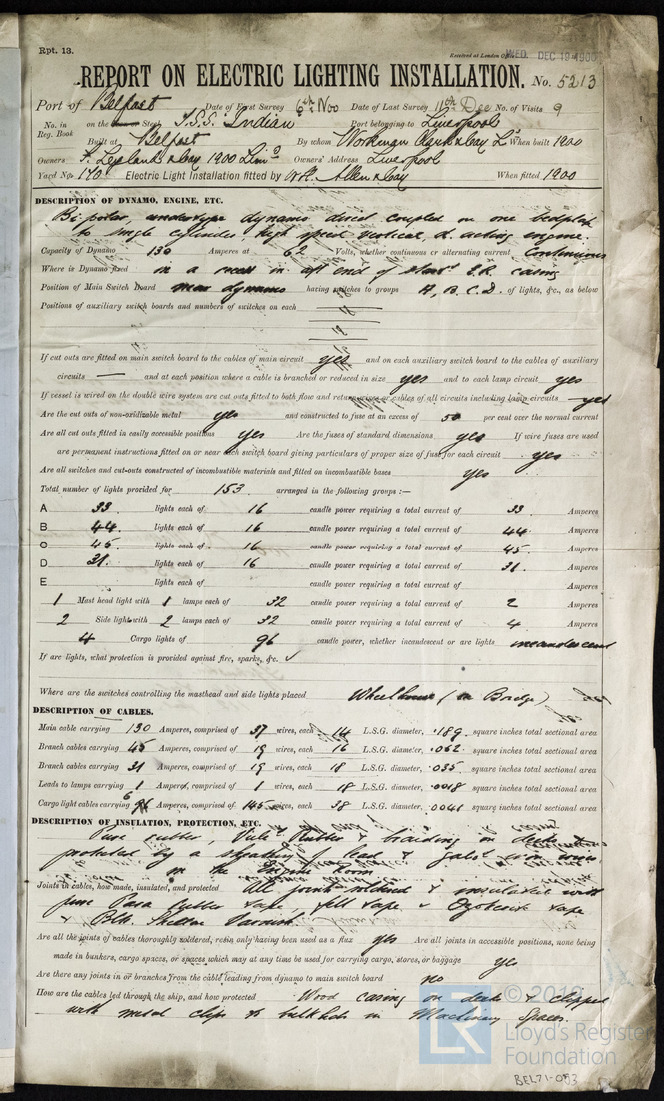 Rpt. 13.
Received at London Office WED. DEC 19 1900
REPORT ON ELECTRIC LIGHTING INSTALLATION. No. 5213
Port of Belfast Date of First Survey 6th Nov Date of Last Survey 11th Dec No. of Visits 9
No. in Reg. Book on the Iron or Steel T.S.S. Indian Port belonging to Liverpool
Built at Belfast By whom Workman Clark & Coy Ld When built 1900
Owners F. Leyland & Coy 1900 Limd Owners' Address Liverpool
Yard No. 170 Electric Light Installation fitted by W.H. Allen & Coy When fitted 1900
DESCRIPTION OF DYNAMO, ENGINE, ETC.
Bi-polar, undertype dynamo direct coupled on one bedplate
to single cylinder, high speed vertical, d. acting engine.
Capacity of Dynamo 130 Amperes at 62 Volts, whether continuous or alternating current Continuous
Where is Dynamo fixed in a recess in aft end of starbd E.R. casing
Position of Main Switch Board near dynamo having switches to groups A, B, C, D. of lights, &c., as below
Positions of auxiliary switch boards and numbers of switches on each
If cut outs are fitted on main switch board to the cables of main circuit yes and on each auxiliary switch board to the cables of auxiliary
circuits — and at each position where a cable is branched or reduced in size yes and to each lamp circuit yes
If vessel is wired on the double wire system are cut outs fitted to both flow and return wires or cables of all circuits including lamp circuits yes
Are the cut outs of non-oxidizable metal yes and constructed to fuse at an excess of 50 per cent over the normal current
Are all cut outs fitted in easily accessible positions yes Are the fuses of standard dimensions yes If wire fuses are used
are permanent instructions fitted on or near each switch board giving particulars of proper size of fuse for each circuit yes
Are all switches and cut-outs constructed of incombustible materials and fitted on incombustible bases yes
Total number of lights provided for 153 arranged in the following groups :—
A 33 lights each of 16 candle power requiring a total current of 33 Amperes
B 44 lights each of 16 candle power requiring a total current of 44 Amperes
C 45 lights each of 16 candle power requiring a total current of 45 Amperes
D 31 lights each of 16 candle power requiring a total current of 31 Amperes
E lights each of candle power requiring a total current of Amperes
1 Mast head light with 1 lamps each of 32 candle power requiring a total current of 2 Amperes
2 Side light with 2 lamps each of 32 candle power requiring a total current of 4 Amperes
4 Cargo lights of 96 candle power, whether incandescent or arc lights incandescent
If arc lights, what protection is provided against fire, sparks, &c. ✓
Where are the switches controlling the masthead and side lights placed Wheelhouse (on Bridge)
DESCRIPTION OF CABLES.
Main cable carrying 130 Amperes, comprised of 37 wires, each 14 L.S.G. diameter, .189 square inches total sectional area
Branch cables carrying 45 Amperes, comprised of 19 wires, each 16 L.S.G. diameter, .062 square inches total sectional area
Branch cables carrying 31 Amperes, comprised of 19 wires, each 18 L.S.G. diameter, .035 square inches total sectional area
Leads to lamps carrying 1 Amperes, comprised of 1 wires, each 18 L.S.G. diameter, .0018 square inches total sectional area
Cargo light cables carrying 6 Amperes, comprised of 145 wires, each 38 L.S.G. diameter, .0041 square inches total sectional area
DESCRIPTION OF INSULATION, PROTECTION, ETC.
Pure rubber, Vulc. Rubber & braiding on decks &
protected by a sheathing of lead & galvd iron wires
in the Engine Room
Joints in cables, how made, insulated, and protected All joints soldered & insulated with
pure Para rubber tape, felt tape, & Ozokerite tape
& Blk. Varnish.
Are all the joints of cables thoroughly soldered, resin only having been used as a flux yes Are all joints in accessible positions, none being
made in bunkers, cargo spaces, or spaces which may at any time be used for carrying cargo, stores, or baggage yes
Are there any joints in or branches from the cable leading from dynamo to main switch board no
How are the cables led through the ship, and how protected Wood casing on decks & clipped
with metal clips to bulkhds in Machinery Spaces.
© 2019
Lloyd's Register
Foundation
BEL71-053